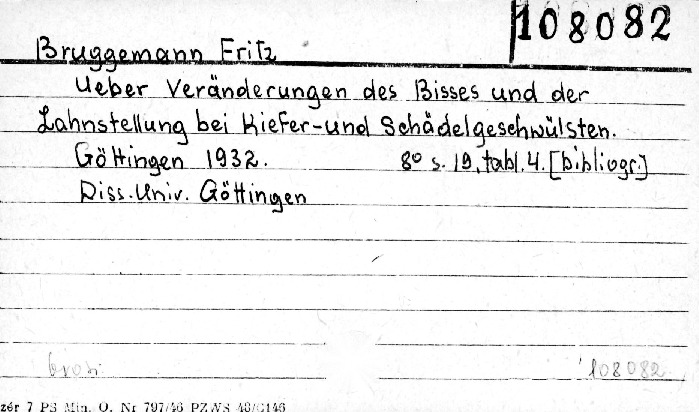 108082
Bruggemann Fritz
Ueber Veränderungen des Bisses und der
Zahnstellung bei Kiefer-und Schädelgeschwülsten.
Göttingen 1932. 8º s. 19, tabl. 4. [bibliogr.]
Diss. Univ. Göttingen
108082
zér 7 PS Min. O. Nr 797/46 PZWS 48/G146